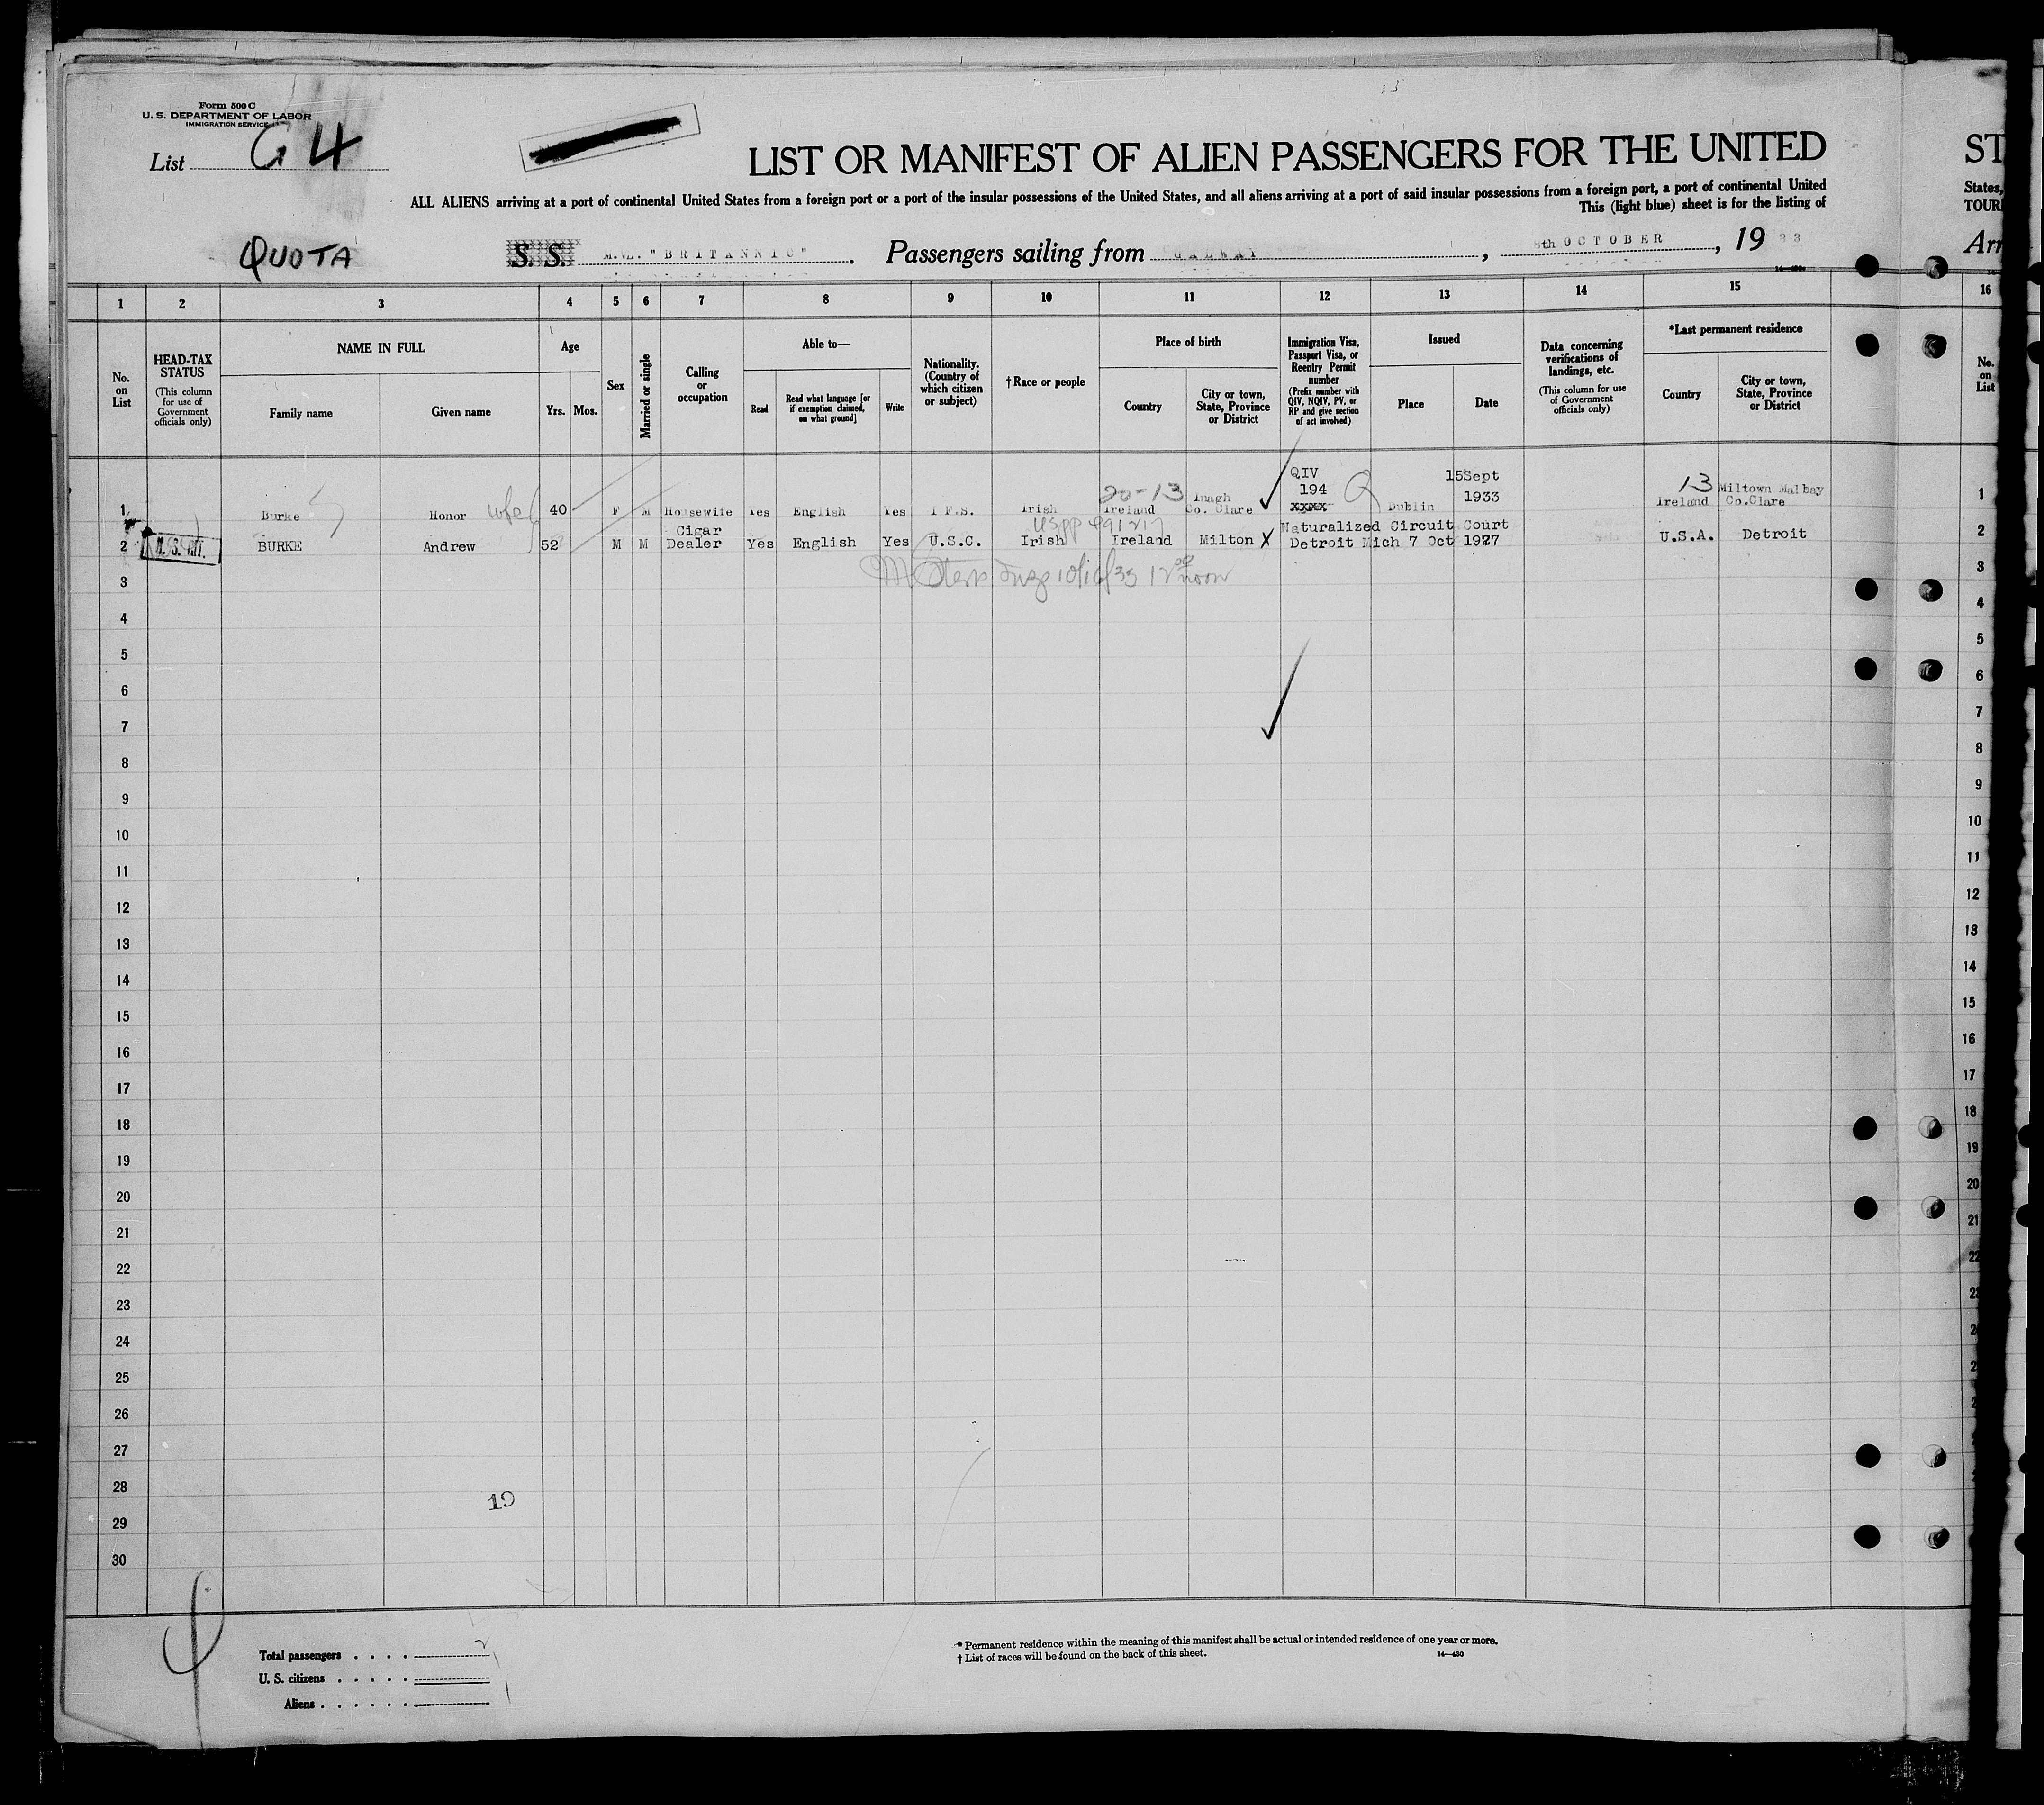 Form 500 C
U. S. DEPARTMENT OF LABOR
IMMIGRATION SERVICE
List G 4
LIST OR MANIFEST OF ALIEN PASSENGERS FOR THE UNITED
ST
ALL ALIENS arriving at a port of continental United States from a foreign port or a port of the insular possessions of the United States, and all aliens arriving at a port of said insular possessions from a foreign port, a port of continental United
States,
This (light blue) sheet is for the listing of
TOUR
QUOTA
S. S. M.V. "BRITANNIC". Passengers sailing from GALWAY, 8th OCTOBER, 1933
Arr
1 2 3 4 5 6 7 8 9 10 11 12 13 14 15 16
No. on List
HEAD-TAX STATUS
(This column for use of Government officials only)
NAME IN FULL
Family name
Given name
Age
Yrs. Mos.
Sex
Married or single
Calling or occupation
Able to—
Read
Read what language [or if exemption claimed, on what ground]
Write
Nationality. (Country of which citizen or subject)
†Race or people
Place of birth
Country
City or town, State, Province or District
Immigration Visa, Passport Visa, or Reentry Permit number
(Prefix number with QIV, NQIV, PV, or RP and give section of act involved)
Issued
Place
Date
Data concerning verifications of landings, etc.
(This column for use of Government officials only)
*Last permanent residence
Country
City or town, State, Province or District
No. on List
1 Burke Honor wife 40 F M Housewife Yes English Yes I F.S. Irish 20-13 Ireland Inagh Co. Clare QIV 194 xxxx Q Dublin 15Sept 1933 13 Ireland Miltown Malbay Co.Clare 1
2 BURKE Andrew 52 M M Cigar Dealer Yes English Yes U.S.C. Irish Ireland Milton X Naturalized Circuit Court Detroit Mich 7 Oct 1927 U.S.A. Detroit 2
3 3
4 4
5 5
6 6
7 7
8 8
9 9
10 10
11 11
12 12
13 13
14 14
15 15
16 16
17 17
18 18
19 19
20 20
21 21
22 22
23
24
25
26
27
28
19
29
30
Total passengers
U. S. citizens
Aliens
* Permanent residence within the meaning of this manifest shall be actual or intended residence of one year or more.
† List of races will be found on the back of this sheet.
14—430